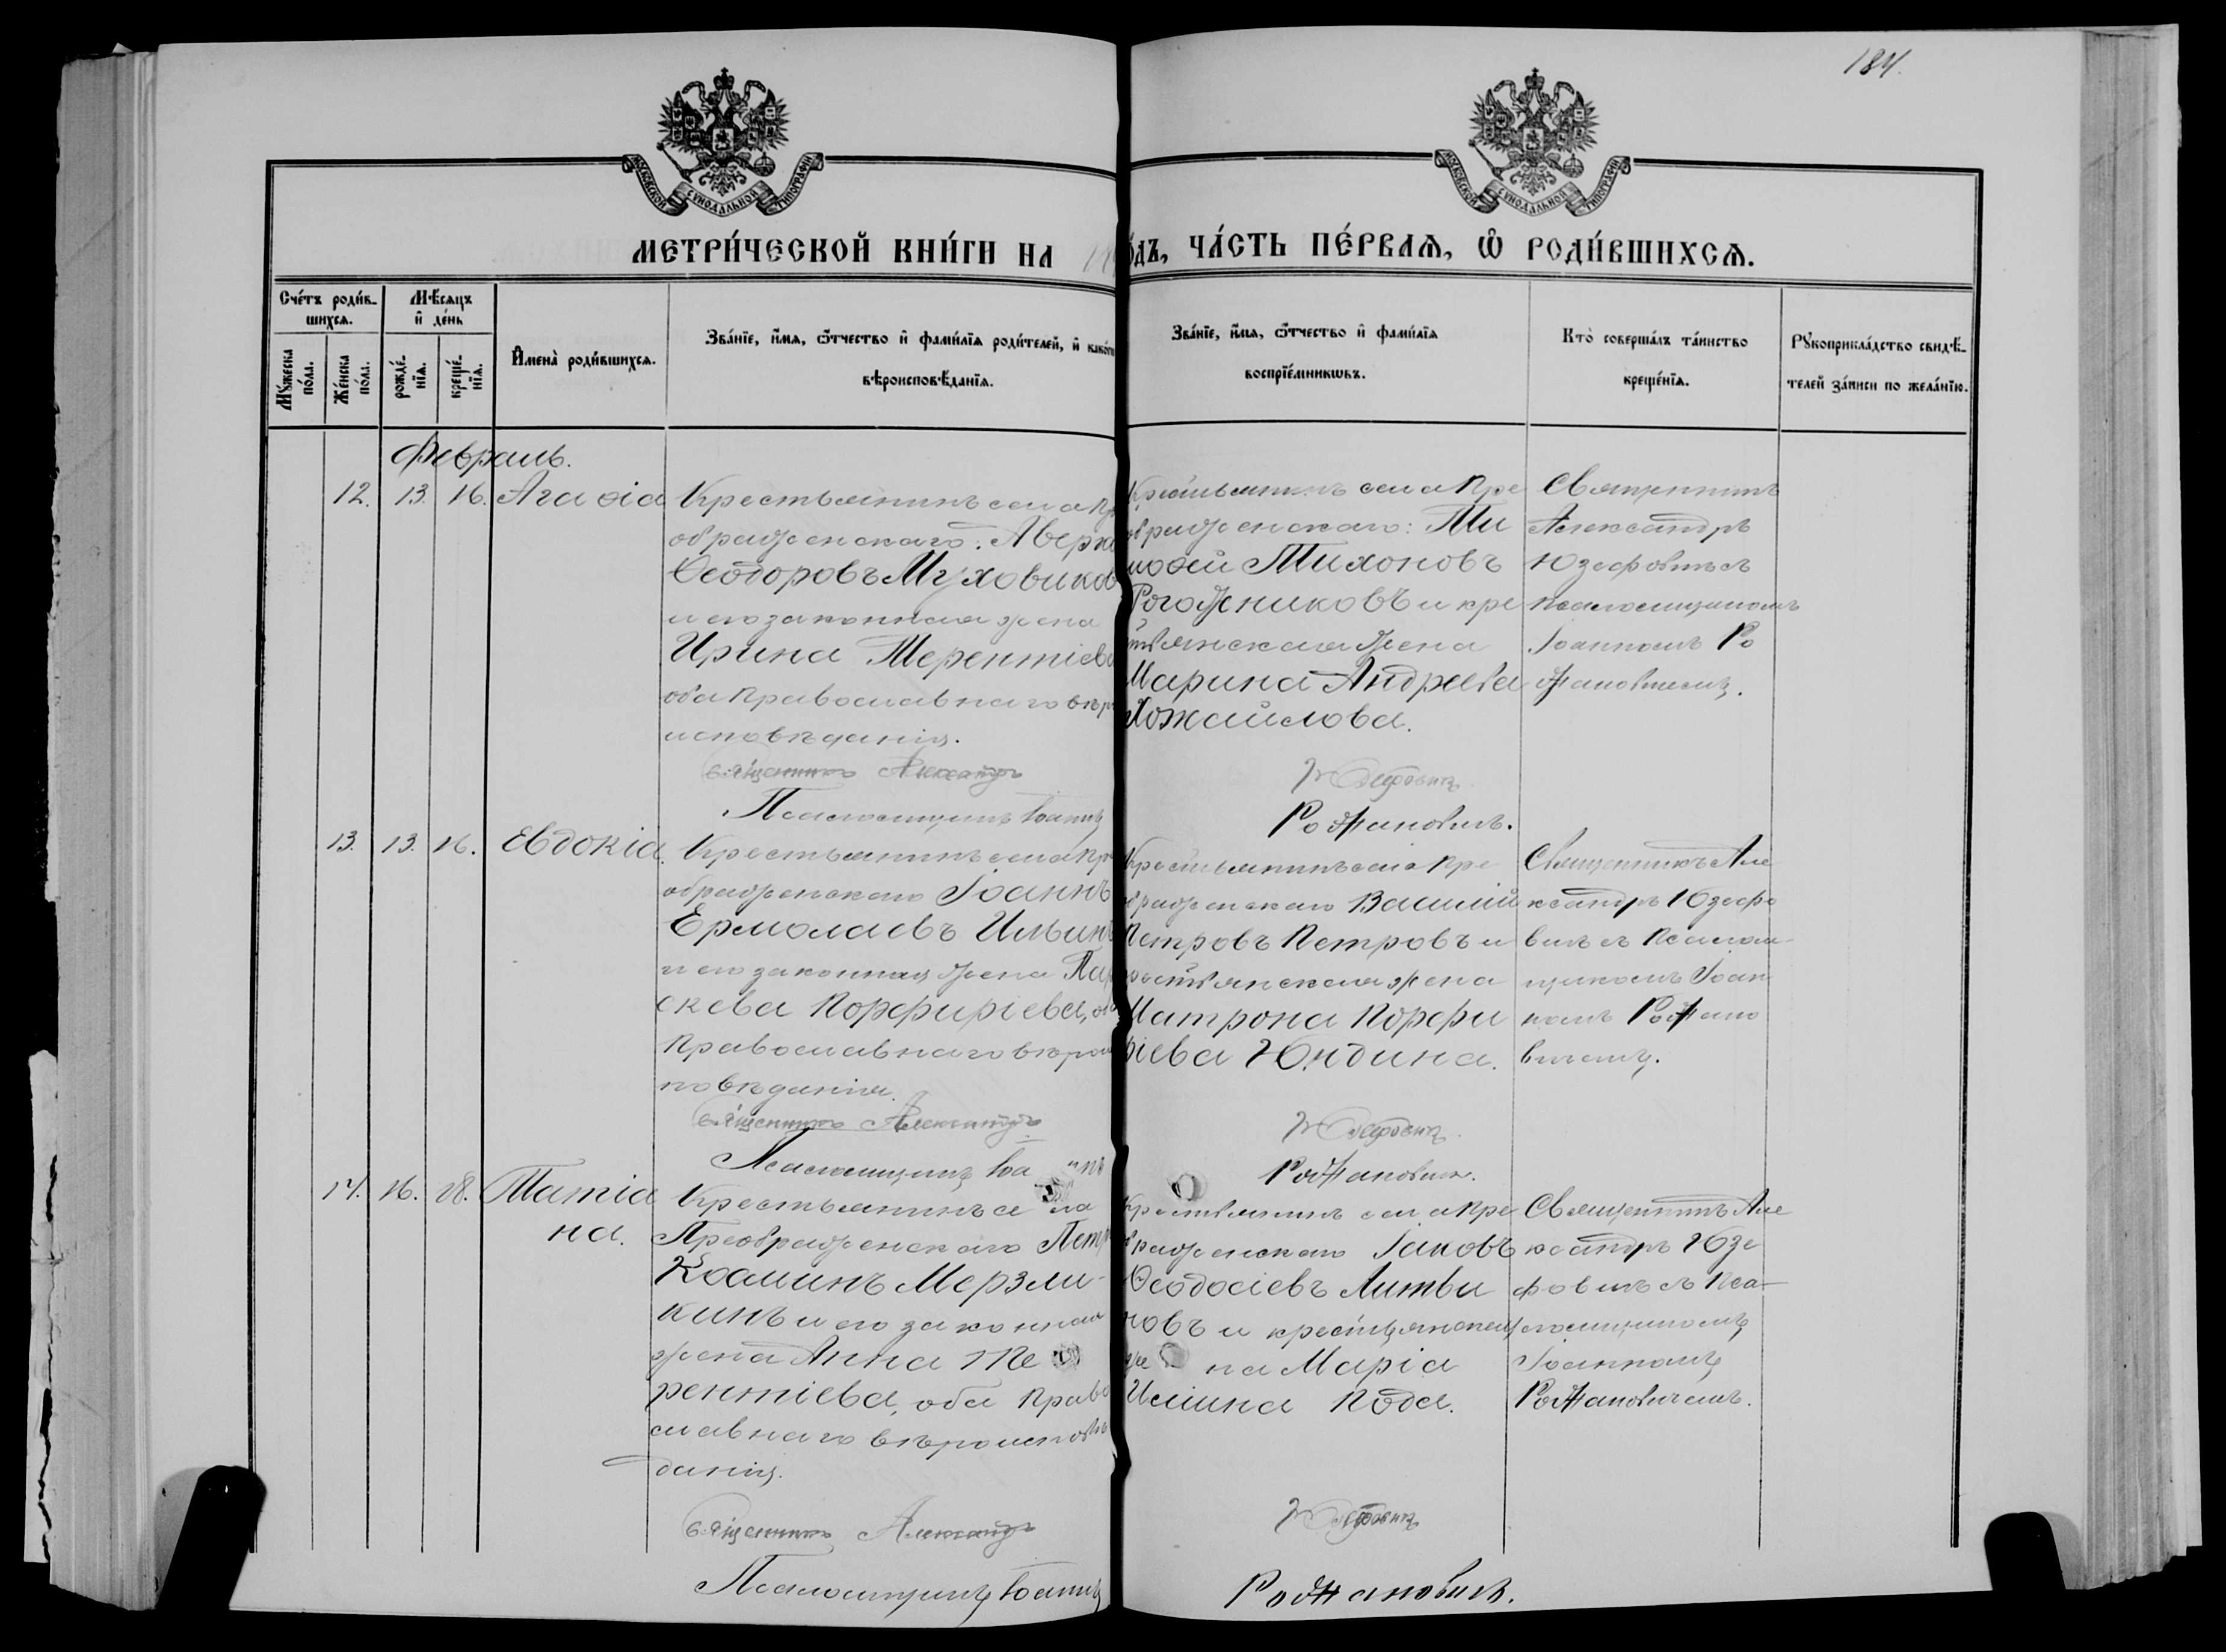 184.
МОСКОВСКОЙ СѴНОДАЛЬНОЙ ТИПОГРАФІИ
МОСКОВСКОЙ СѴНОДАЛЬНОЙ ТИПОГРАФІИ
МЕТРИ́ЧЕСКОЙ КНИ́ГИ НА
ѠДЪ, ЧА́СТЬ ПЕ́РВАѦ, Ѿ РОДИ́ВШИХСѦ.
Сче́тъ роди́в-
шихсѧ.
Мѹ́жеска по́ла.
Же́нска по́ла.
Мѣ́сѧцъ
и҆ де́нь
рожде́-
нїѧ.
креще́-
нїѧ.
И҆мена̀ роди́вшихсѧ.
Зва́нїе, и҆́мѧ, ѻ҆́тчество и҆ фами́лїѧ роди́телей, и҆ како́гѡ
вѣроисповѣ́данїѧ.
Зва́нїе, и҆́мѧ, ѻ҆́тчество и҆ фами́лїѧ
воспрїе́мникѡвъ.
Кто̀ соверша́лъ та́инство
креще́нїѧ.
Рѹкоприкла́дство свидѣ́-
телей за́писи по жела́нїю.
Февраль.
12. 13. 16. Агаѳіа
Крестьянинъ села Пр
ображенскаго: Аверк
Ѳеодоровъ Муховиков
и его законная жена
Ирина Терентіев
оба православнаго вѣр
исповѣданія.
Священникъ Александръ
Псаломщикъ Іоаннъ
Крестьянинъ села Пре
ображенскаго: Ти
моѳей Тихоновъ
Рогожниковъ и кре
стьянская жена
Марина Андреева
Хожайлова.
Юзефовичъ
Рожановичъ.
Священникъ
Александръ
Юзефовичъ съ
псаломщикомъ
Іоанномъ Ро
жановичемъ.
13. 13. 16. Евдокіа.
Крестьянинъ села Пр
ображенскаго Іоаннъ
Ермолаевъ Ильинъ
и его законная жена Пар
скева Порфиріева, оба
православнаго вѣроис
повѣданія.
Священникъ Александръ
Псаломщикъ Іоаннъ
Крестьянинъ села Пре
ображенскаго Василій
Петровъ Петровъ и
крестьянская жена
Матрона Порфи
ріева Юндина.
Юзефовичъ.
Рожановичъ.
Священникъ Але
ксандръ Юзефо
вичъ съ псалом-
щикомъ Іоан
номъ Рожано
вичемъ.
14. 16. 28. Татіа
на.
Крестьянинъ села
Преображенскаго Петр
Косминъ Мерзли-
кинъ и его законная
жена Анна Те
рентіева, оба право
славнаго вѣроисповѣ
данія.
Священникъ Александръ
Псаломщикъ Іоаннъ
Крестьянинъ села Пре
ображенскаго Іаковъ
Ѳеодосіевъ Литви
новъ и крестьянская
жена Маріа
Юзефовичъ
Рожановичъ.
Священникъ Але
ксандръ Юзе
фовичъ съ пса-
ломщикомъ
Іоанномъ
Рожановичемъ.